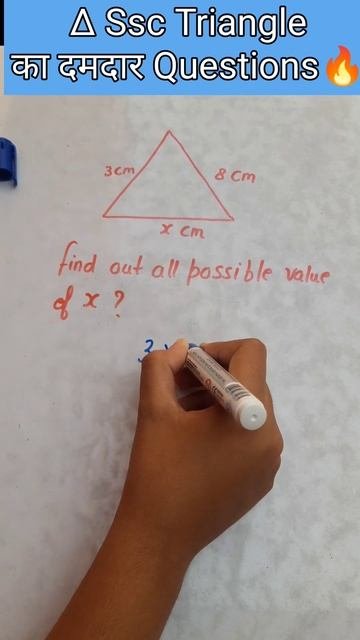 Δ Ssc Triangle
का दमदार Questions🔥
3cm
8 cm
x cm
find out all possible value
of x ?
3